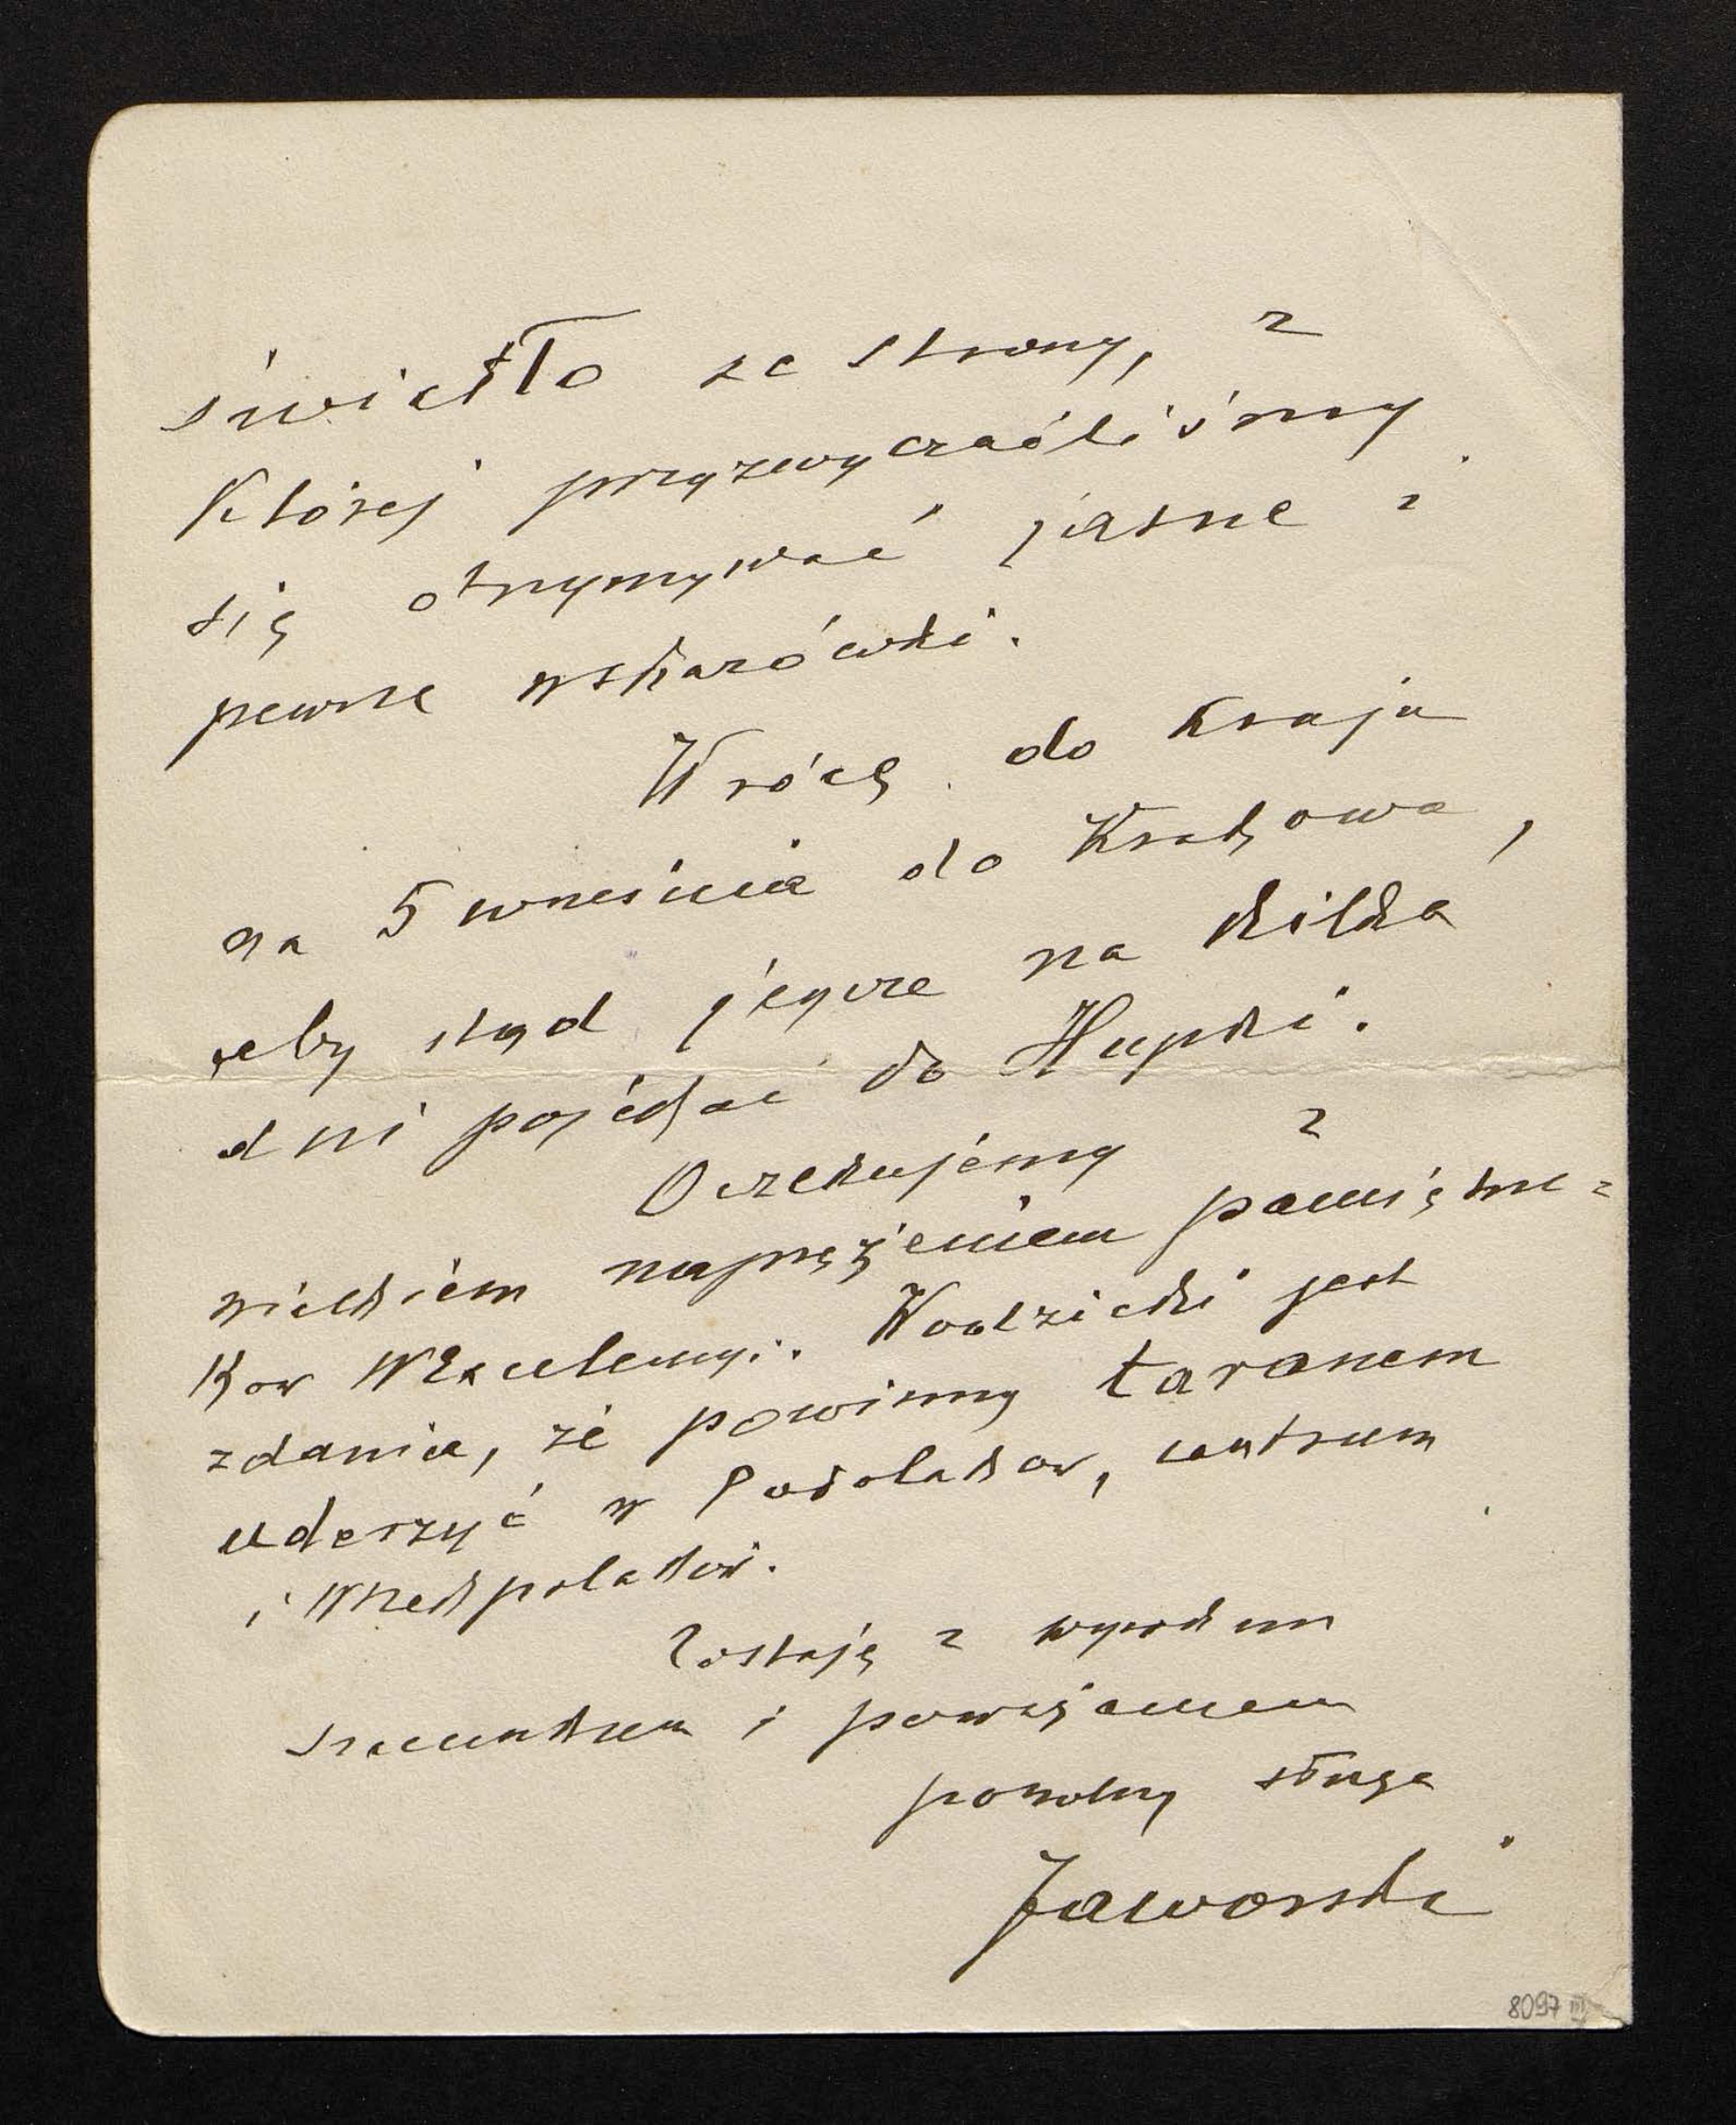 światło ze strony, z
której przyzwyczailiśmy
się otrzymywać jasne i
pewne wskazówki.
Wrócę do kraju
na 5 września do Krakowa,
aby stąd jeszcze na kilka
dni pojechać do Hupki.
Oczekujemy z
wielkiem naprężeniem pamiętni=
ków WExcelencyi. Wodzicki jest
zdania, że powinny taranem
uderzyć w Podolaków, centrum
i Wszechpolaków.
Zostaję z wysokim
szacunkiem i poważaniem
powolny sługa
Jaworski
8097 III